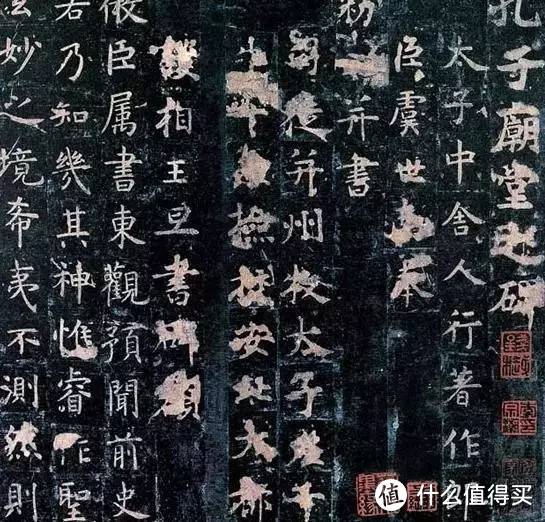 孔子廟堂之碑
太子中舍人行著作郎
臣虞世南奉
勑 并書
司徒并州牧太子左千
牛 安北大都
相王旦書碑額
微臣属書東觀預聞前史
若乃知幾其神惟睿作聖
玄妙之境希夷不測然則
值 什么值得买